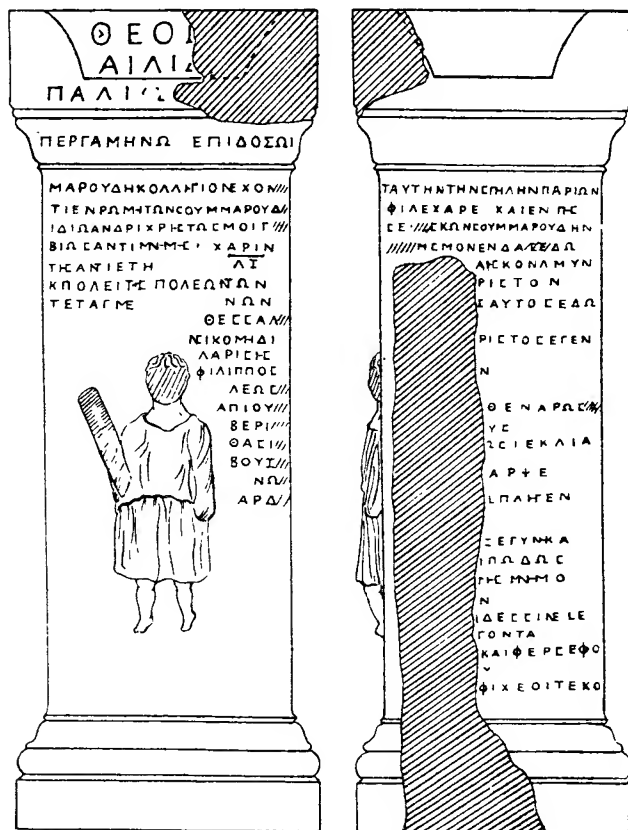 ΘΕΟΙ
ΑΙΛΙ
ΠΑΛΙ
ΠΕΡΓΑΜΗΝΩ ΕΠΙΔΟΣΩΙ
ΜΑΡΟΥΔΗΚΟΛΛΗΓΙΟΝΕΧΟΝ
ΤΙΕΝΡΩΜΗΤΩΝΣΟΥΜΜΑΡΟΥΔ
ΙΔΙΩΑΝΔΡΙΧΡΗΣΤΩΣΜΟΙΓ
ΧΑΡΙΝ
ΤΗΣΑΝΤΙΕΤΗ ΛΣ
ΤΕΤΑΓΜΕ ΝΩΝ
ΘΕΣΣΑΛ
ΝΙΚΟΜΗΔΙ
ΛΑΡΙΣΗΣ
ΦΙΛΙΠΠΟΣ
ΛΕΩΣ
ΑΠΙΟΥ
ΒΕΡΙ
ΘΑΣΙ
ΒΟΥΣ
ΝΩ
ΑΡΔ
ΤΑΥΤΗΝΤΗΝΣΠΗΛΗΝΠΑΡΙΩΝ
ΦΙΛΕΧΑΡΕ ΧΑΙΕΝ ΠΣ
ΣΕ ΣΚΩΝΣΟΥΜΜΑΡΟΥΔΗΝ
ΑΗΣΚΟΝΛΜΥΝ
ΡΙΣΤΟΝ
ΣΑΥΤΟΣΕΔΩ
ΡΙΣΤΟΣΕΓΕΝ
Ν
ΘΕΝΑΡΩΣ
ΥΣ
ΩΣΙΕΚΛΙΑ
ΑΡΨΕ
ΣΠΛΗΓΕΝ
ΞΕΓΥΝΚΑ
ΙΠΩΔΩΣ
ΤΗΣ ΜΝΗΜΟ
Ν
ΙΔΕΣΣΙΝΕΙΕ
ΓΟΝΤΑ
ΚΑΙΦΕΡΣΕΦΟ
ΦΙΧΕΟΙΤΕΚΟ